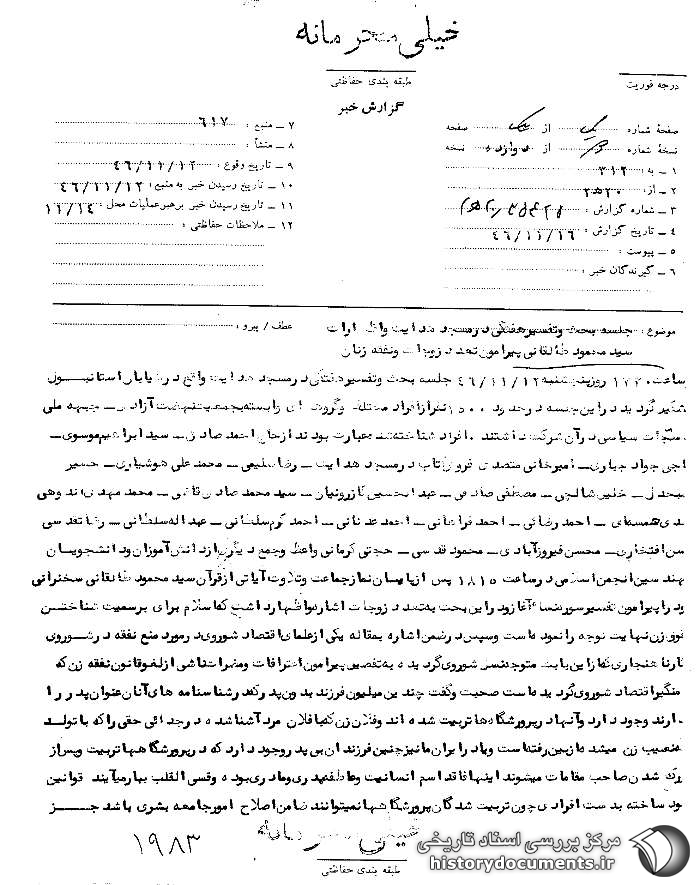 خیلی محرمانه
طبقه بندی حفاظتی
درجه فوریت
گزارش خبر
صفحهٔ شماره یک از یک صفحه
نسخهٔ شماره از دوازده نسخه
۱ – به : ۳۱۲
۲ – از :
۳ – شماره گزارش :
۴ – تاریخ گزارش : ۴۶/۱۱/۱۶
۵ – پیوست :
۶ – گیرندگان خبر :
۷ – منبع : ۶۱۷
۸ – منشأ :
۹ – تاریخ وقوع : ۴۶/۱۱/۱۲
۱۰ – تاریخ رسیدن خبر به منبع : ۴۶/۱۱/۱۲
۱۱ – تاریخ رسیدن خبر برهبر عملیات محل : ۱۱/۱۴
۱۲ – ملاحظات حفاظتی :
موضوع : جلسه بحث وتفسیر هفتگی در مسجد هدایت واظهارات
عطف / پیرو :
سید محمود طالقانی پیرامون تعدد زوجات ونفقه زنان
ساعت روز پنجشنبه ۴۶/۱۱/۱۲ جلسه بحث وتفسیر هفتگی در مسجد هدایت واقع در خیابان استانبول
تشکیل گردید در این جلسه در حدود نفر از افراد مختلف وگروه های وابسته بجمعیت نهضت آزادی – جبهه ملی
سیاسی در آن شرکت داشتند . افراد شناخته شده عبارت بودند از حاج احمد صادق – سید ابراهیم موسوی –
حاجی جواد جباری – امیرخانی متصدی فروش کتاب در مسجد هدایت – رضا سلیمی – محمد علی هوشیاری – حسین
– مصطفی صادقی – عبدالحسین کازرونیان – سید محمد صادق قاضی – محمد مهدی
– احمد رضائی – احمد فراهانی – احمد عدنانی – احمد کرم سلطانی – عبداله سلطانی – رضا تقدسی
افتخاری – محسن فیروزآبادی – محمود قدسی – حجتی کرمانی واعظ وجمع دیگری از دانش آموزان ودانشجویان
مهندسین انجمن اسلامی در ساعت ۱۸۱۵ پس از پایان نماز جماعت وتلاوت آیاتی از قرآن سید محمود طالقانی سخنرانی
خود را پیرامون تفسیر سوره نساء آغاز ودر این بحث به تعدد زوجات اشاره واظهار داشت که اسلام برای برسمیت شناختن
حقوق زن نهایت توجه را نموده است وسپس در ضمن اشاره بمقاله یکی از علمای اقتصاد شوروی در مورد منع نفقه در شوروی
که از این بابت متوجه شوروی گردیده به تفصیل پیرامون اعترافات ومضرات ناشی از لغو قانون نفقه زن که
اقتصاد شوروی گردیده است صحبت وگفت چندین میلیون فرزند بدون پدر که در شناسنامه های آنان عنوان پدر را
ندارند وجود دارد وآنها در پرورشگاه ها تربیت شده اند وفلان زن که با فلان مرد آشنا شده در جدائی حقی را که با تولد
نصیب زن میشد از بین رفته است ویا در ایران ما نیز چنین فرزندان بی پدر وجود دارد که در پرورشگاهها تربیت وپس از
بزرگ شدن صاحب مقامات میشوند اینها فاقد اسم انسانیت وعاطفه پدری ومادری بوده وقسی القلب ببار میآیند . قوانین
خود ساخته بدست افرادی چون تربیت شدگان پرورشگاهها نمیتوانند ضامن اصلاح امور جامعه بشری باشد جــز
خیلی محرمانه
۱۹۸۳
طبقه بندی حفاظتی
مرکز بررسی اسناد تاریخی
historydocuments.ir